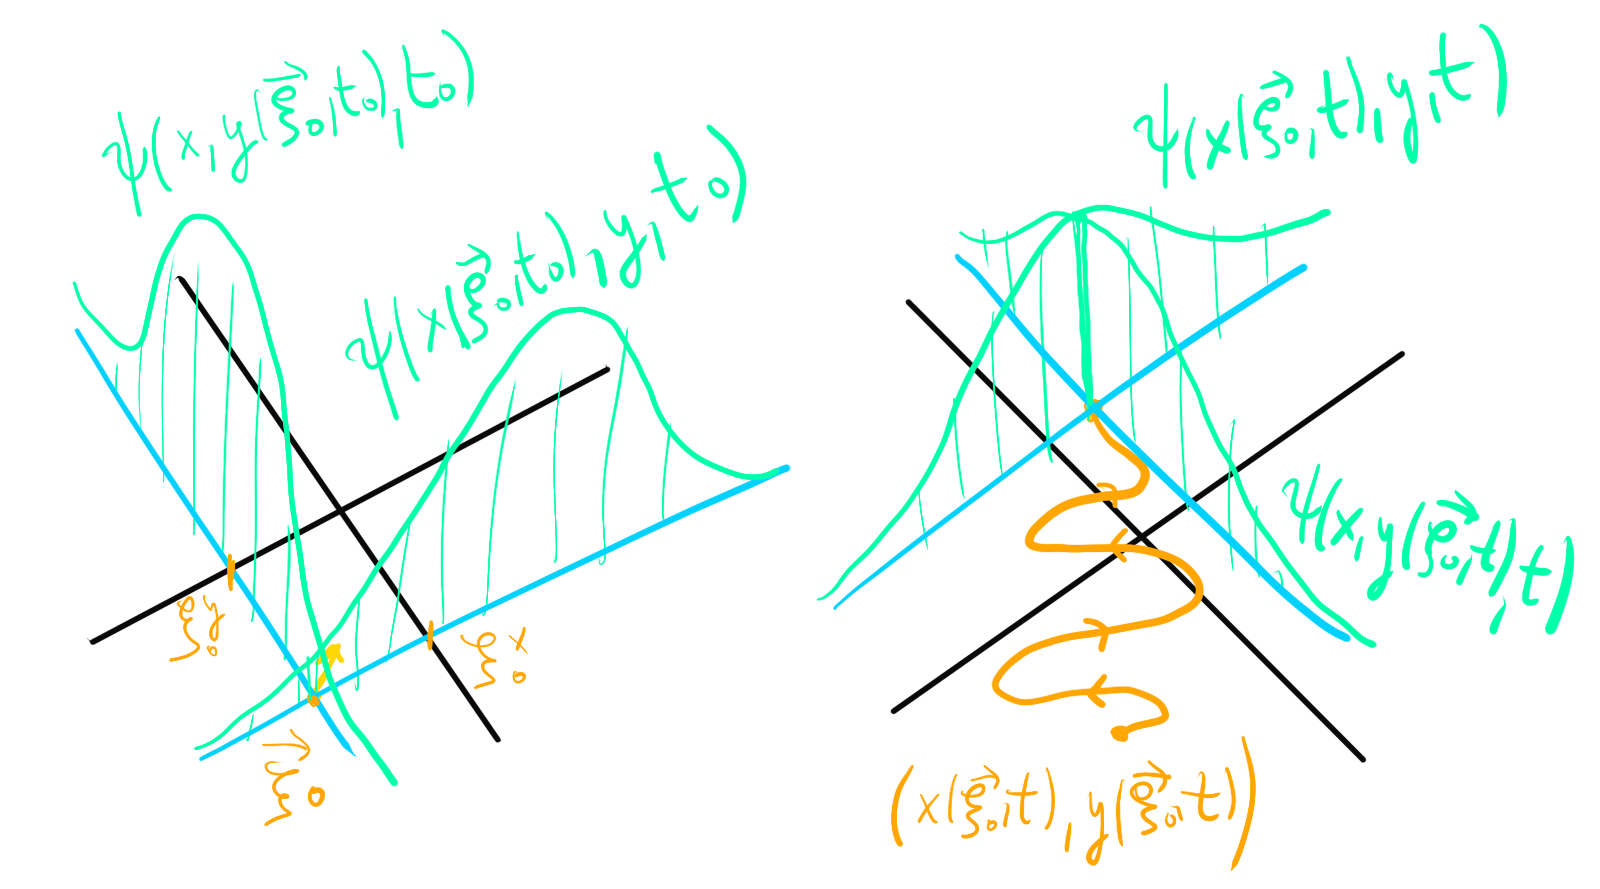 ψ(x, y(ξ⃗₀, t₀), t₀)
ψ(x(ξ⃗₀, t₀), y, t₀)
ξ₀ʸ
ξ₀ˣ
ξ⃗₀
ψ(x(ξ⃗₀, t), y, t)
ψ(x, y(ξ⃗₀, t), t)
(x(ξ⃗₀, t), y(ξ⃗₀, t))